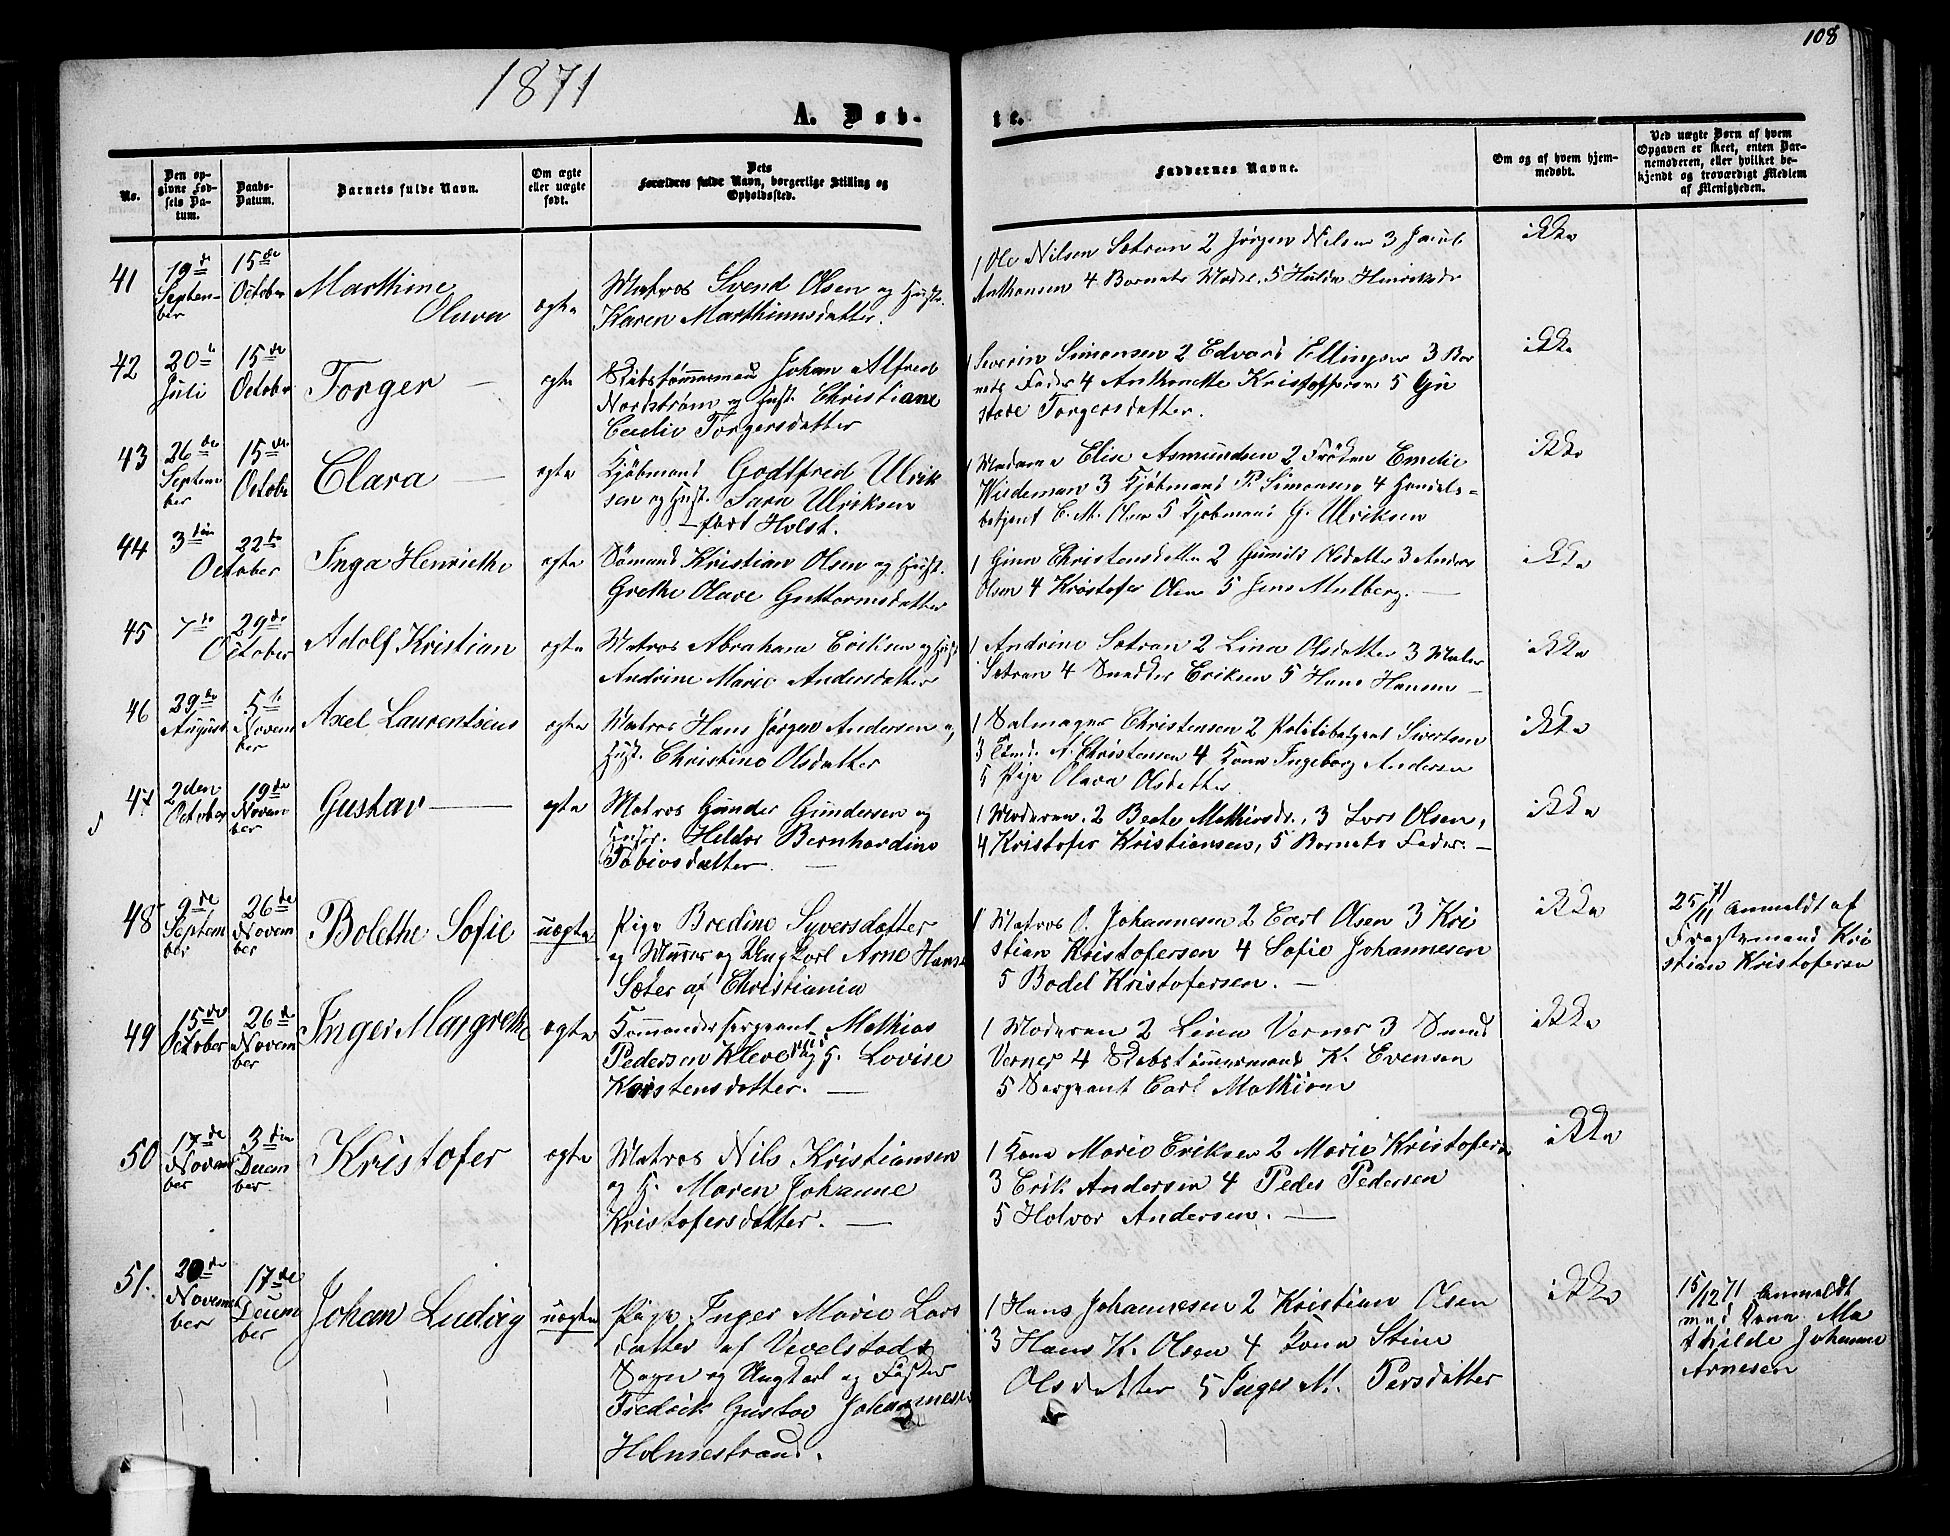 108
1871
A. Døb-
te.
No.
Den op-
givne Fød-
sels Da-
tum.
Daabs-
Datum.
Barnets fulde Navn.
Om ægte
eller uægte
født.
Dets
Forældres fulde Navn, borgerlige Stilling og
Opholdssted.
Faddernes Navne.
Om og af hvem hjem-
medøbt.
Ved uægte Børn af hvem
Opgaven er skeet, enten Bar-
nemoderen, eller hvilket be-
kjendt og troværdigt Medlem
af Menigheden.
41
19de
Septem-
ber
15de
October
Marthine
Olava
ægte
Matros Svend Olsen og Hust.
Karen Marthinusdatter.
1 Ole Nilsen Sætran 2 Jørgen Nilsen 3 Jacob
Anthonsen 4 Barnets Moder, 5 Hulda Henriksdr
ikke
42
20de
Juli
15de
October
Torger —
ægte
Skibstømmermand Johan Alfred
Nordstrøm og Hust. Christiane
Torgersdatter
1 Severin Simonsen 2 Edvard Ellingsen 3 Bar
nets Fader 4 Anthonette Kristoffersen 5 Gu
Torgersdatter.
ikke
43
26de
Septem
ber
15de
October
Clara —
ægte
Kjøbmand Godtfred Ulrik
sen og Hust. Sara Ulriksen
— født Holst.
1 Madame Elise Asmundsen 2 Frøken Emelie
Wiedeman 3 Kjøbmand P. Simonsen 4 Handels-
betjent C. M. Olsen 5 Kjøbmand G. Ulriksen
ikke
44
3die
October
22de
Inga Henriethe
ægte
Sømand Kristian Olsen og Hust.
Grethe Olave Guttormsdatter
1 Gina Christensdatter 2 Gunild Olsdatter 3 Anders
Olsen 4 Kristofer Olsen 5 Jens Mulberg. —
ikke
45
7de
October
29de
Adolf Kristian
ægte
Matros Abraham Eriksen og Hust
Andrine Marie Andersdatter
1 Andrine Sætran 2 Lina Olsdatter 3 Maler
Sætran 4 Snedker Eriksen 5 Hans Hansen —
ikke
46
29de
August
5te
Novem
ber
Axel Laurentsius
ægte
Matros Hans Jørgen Andersen og
Hust. Christine Olsdatter
1 Salmager Christensen 2 Politibetjent Sivertsen
3 A. Christensen 4 Kona Ingeborg Andersen
5 Pige Olava Olsdatter
ikke
47
2den
October
19de
Novem
ber
Gustav —
ægte
Matros Gunder Gundersen og
Hustr. Hilda Bernhardine
Tobiasdatter —
1 Moderen, 2 Beate Mathiasd., 3 Lars Olsen,
4 Kristofer Kristiansen, 5 Barnets Fader. —
ikke
48
9de
Septem
ber
26de
Novem
ber
Bolethe Sofie
uægte
Pige Bredine Syversdatter
og Murer og Ungkarl Arne Hansen
Sæter af Christiania
1 Matros O. Johannesen 2 Carl Olsen 3 Kri
stian Kristofersen 4 Sofie Johannesen
5 Bodel Kristofersen. —
ikke
25/11 71 Anmeldt af
Fragtemand Kri
stian Kristofersen
49
15de
October
26de
Novem
ber
Inger Margrethe
ægte
Kommandersergeant Mathias
Pedersen Kleve og H. Lovise
Karstensdatter. —
1 Moderen 2 Lina Verner 3 Smed
Verner 4 Skibstømmermand K. Evensen
5 Sergeant Carl Mathisen
ikke
50
17de
Novem
ber
3die
Decem
ber
Kristofer
ægte
Matros Nils Kristiansen
og H. Maren Johanne
Kristofersdatter. —
1 Kona Marie Eriksen 2 Marie Kristofersen
3 Erik Andersen 4 Peder Pedersen
5 Halvor Andersen. —
ikke
51.
20de
Novem
ber
17de
Decem
ber
Johan Ludvig
uægte
Pige Inger Marie Lars
datter af Vivelstads
Sogn og Ungkarl og Fisker
Fredrik Gustav Johannesen
Holmestrand.
1 Hans Johannesen 2 Kristian Olsen
3 Hans K. Olsen 4 Kona Stine
Olsdatter 5 Inger M. Persdatter
ikke
15/12 71 Anmeldt
med Kona Ma
thilde Johanne
Arnesen